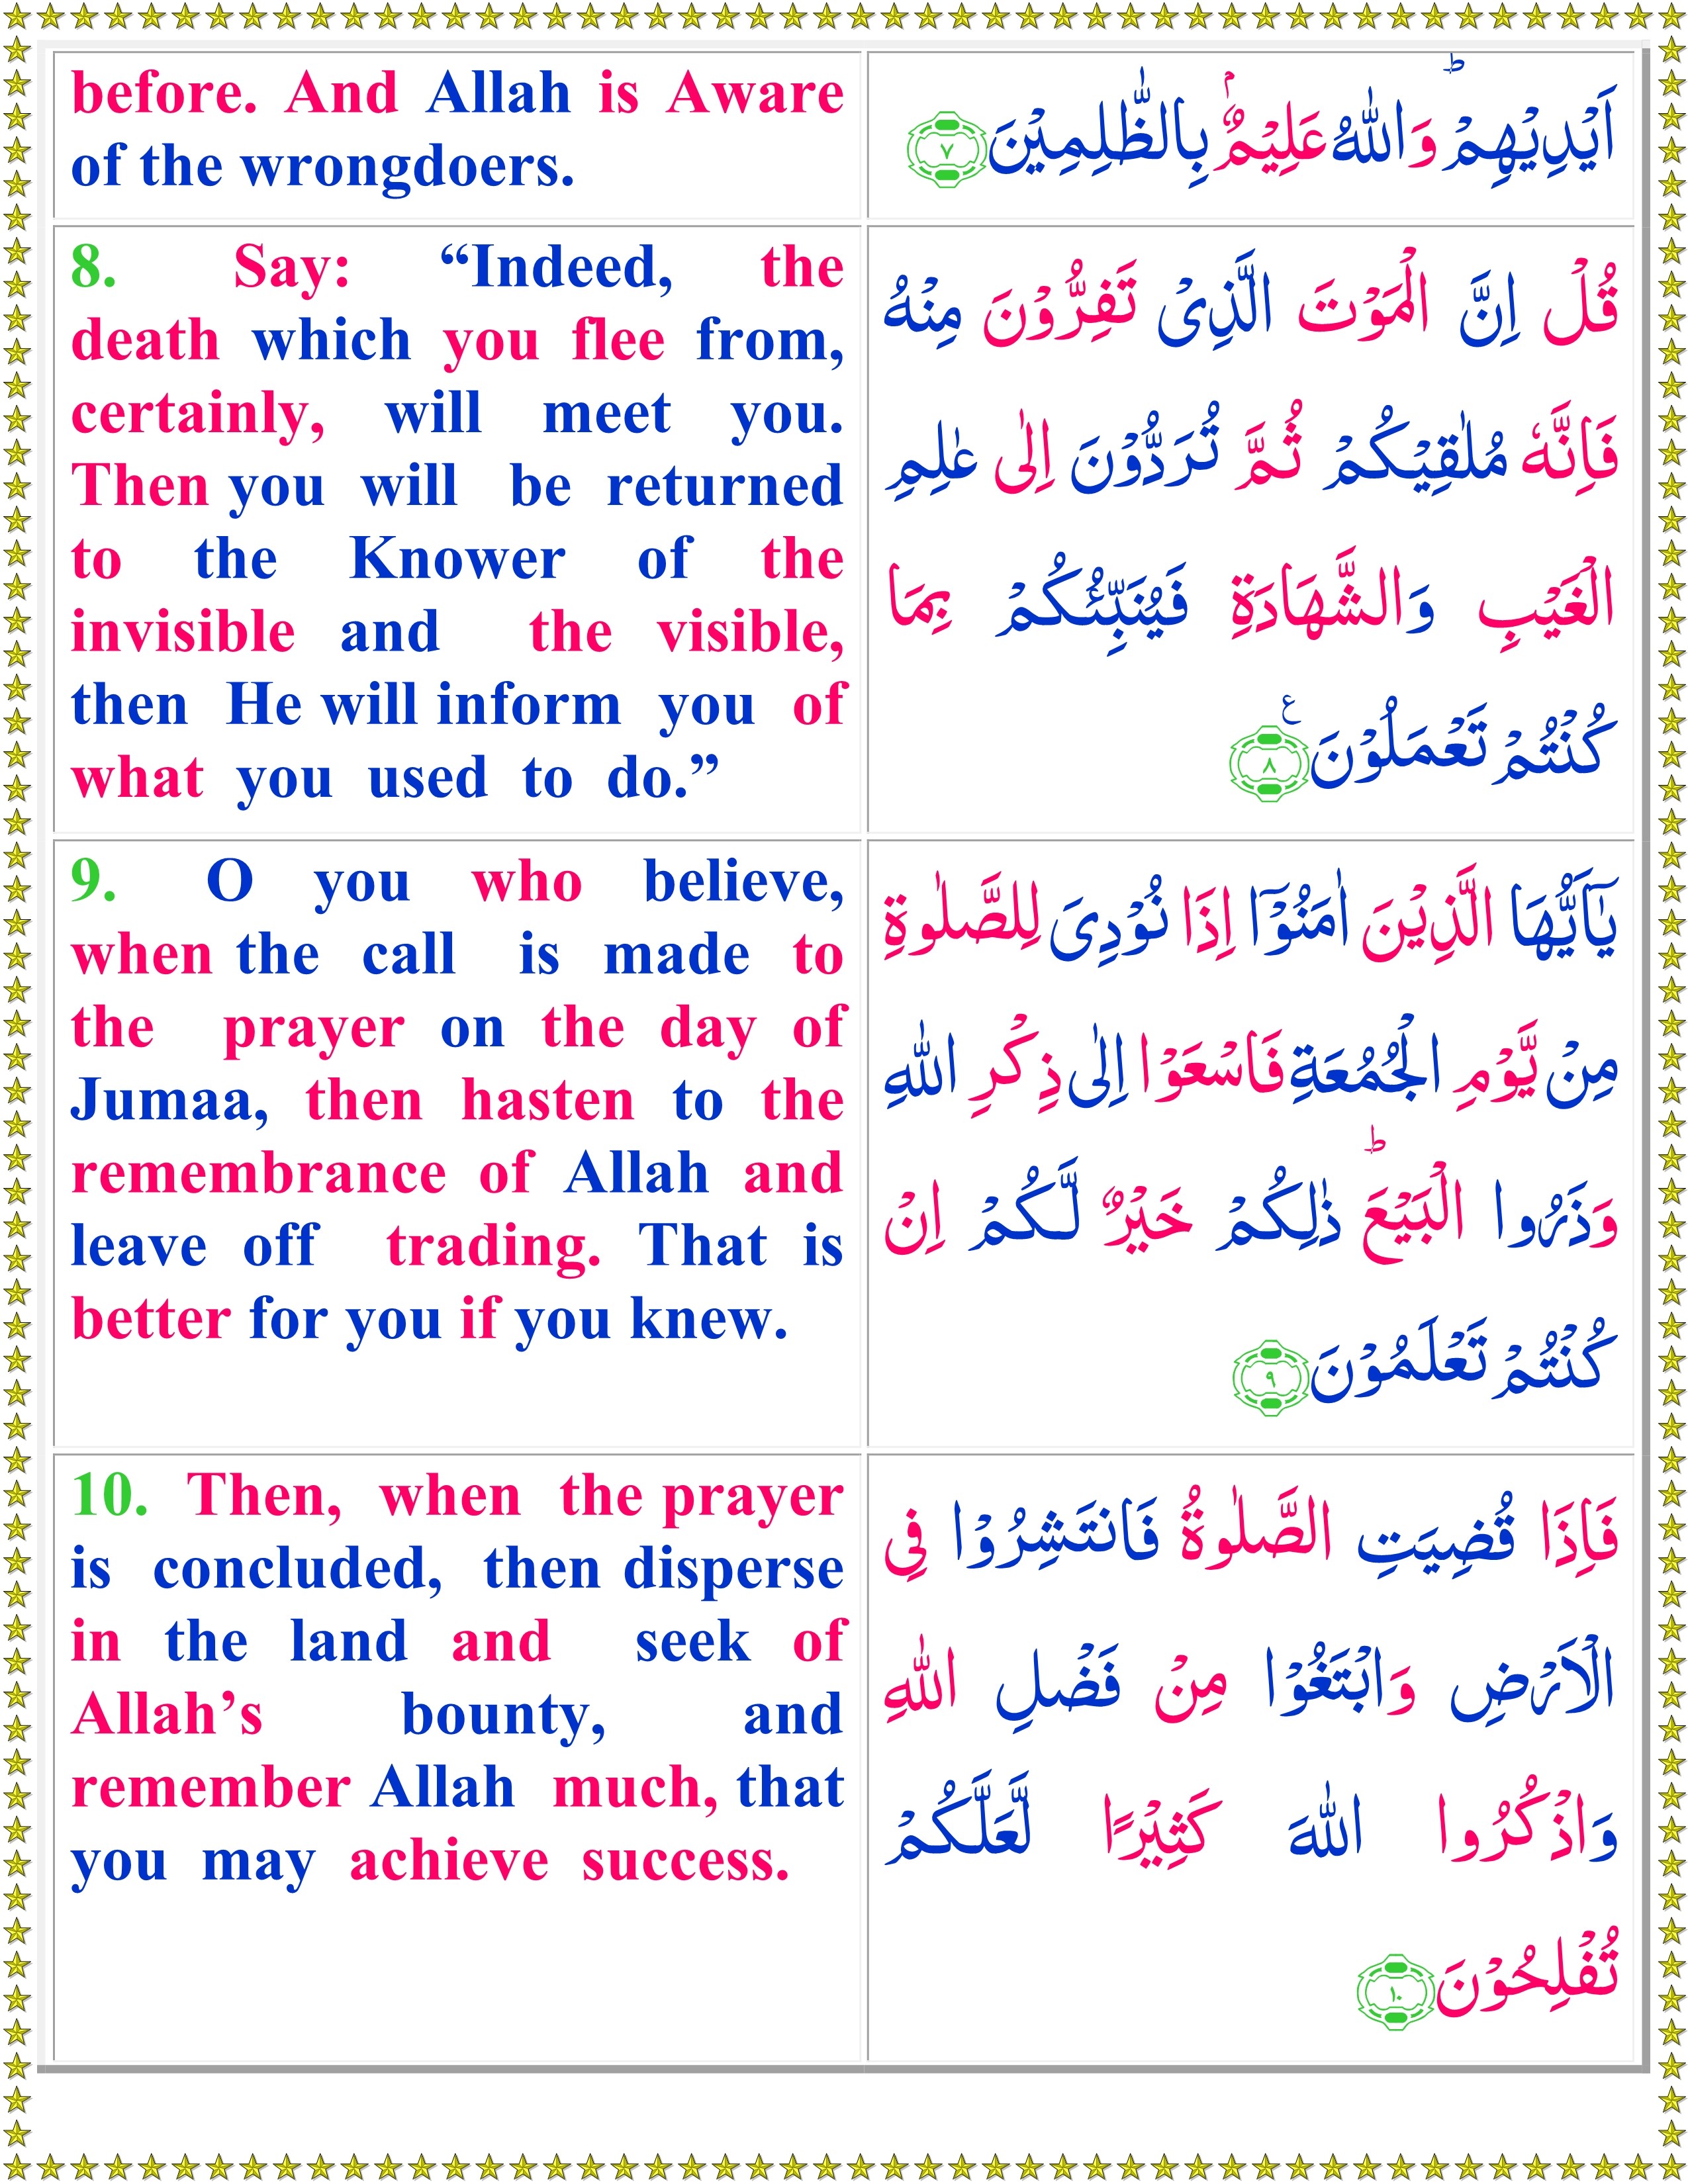 before. And Allah is Aware
of the wrongdoers.
اَيْدِيْهِمْ ؕ وَاللّٰهُ عَلِيْمٌۢ بِالظّٰلِمِيْنَ ۷
8. Say: “Indeed, the
death which you flee from,
certainly, will meet you.
Then you will be returned
to the Knower of the
invisible and the visible,
then He will inform you of
what you used to do.”
قُلْ اِنَّ الْمَوْتَ الَّذِىْ تَفِرُّوْنَ مِنْهُ
فَاِنَّهٗ مُلٰقِيْكُمْ ثُمَّ تُرَدُّوْنَ اِلٰى عٰلِمِ
الْغَيْبِ وَالشَّهَادَةِ فَيُنَبِّئُكُمْ بِمَا
كُنْتُمْ تَعْمَلُوْنَ ۸ ع
9. O you who believe,
when the call is made to
the prayer on the day of
Jumaa, then hasten to the
remembrance of Allah and
leave off trading. That is
better for you if you knew.
يٰۤاَيُّهَا الَّذِيْنَ اٰمَنُوْۤا اِذَا نُوْدِىَ لِلصَّلٰوةِ
مِنْ يَّوْمِ الْجُمُعَةِ فَاسْعَوْا اِلٰى ذِكْرِ اللّٰهِ
وَذَرُوا الْبَيْعَ ؕ ذٰلِكُمْ خَيْرٌ لَّكُمْ اِنْ
كُنْتُمْ تَعْلَمُوْنَ ۹
10. Then, when the prayer
is concluded, then disperse
in the land and seek of
Allah’s bounty, and
remember Allah much, that
you may achieve success.
فَاِذَا قُضِيَتِ الصَّلٰوةُ فَانْتَشِرُوْا فِى
الْاَرْضِ وَابْتَغُوْا مِنْ فَضْلِ اللّٰهِ
وَاذْكُرُوا اللّٰهَ كَثِيْرًا لَّعَلَّكُمْ
تُفْلِحُوْنَ ۱۰